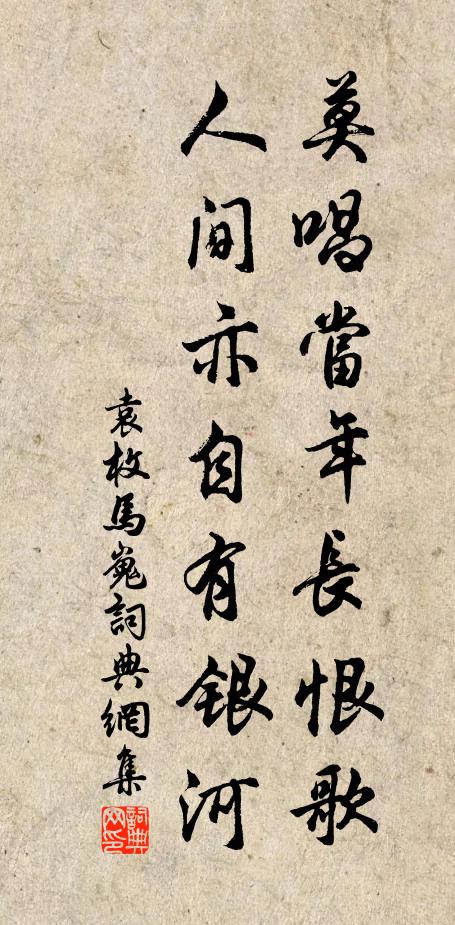 莫唱當年長恨歌
人間亦自有银河
袁枚馬嵬詞典網集
詞典網印